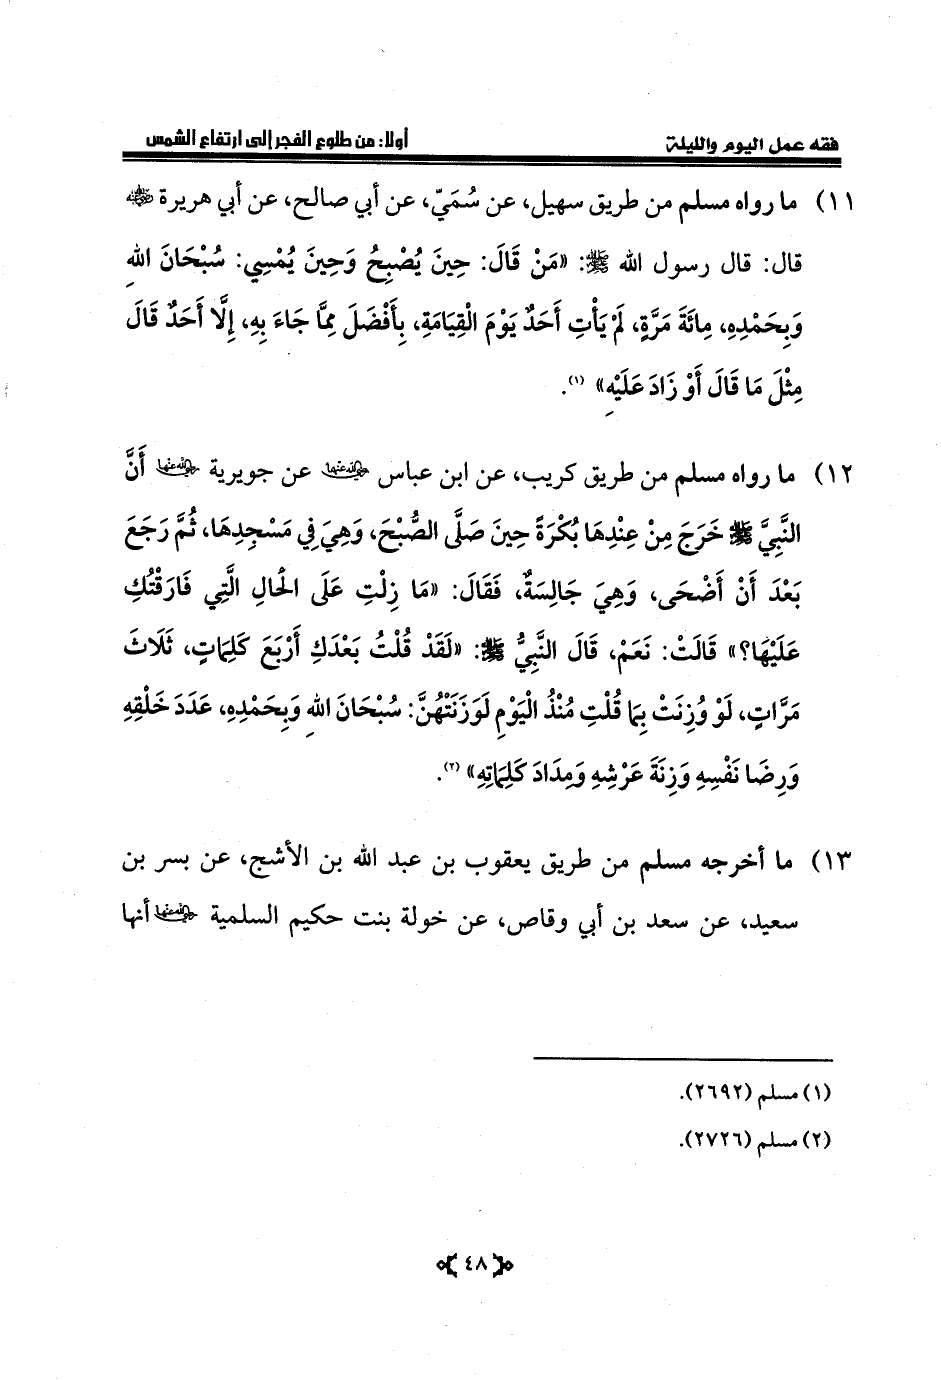 فقه عمل اليوم والليلة
أولا: من طلوع الفجر إلى ارتفاع الشمس
١١) ما رواه مسلم من طريق سهيل، عن سُمَيّ، عن أبي صالح، عن أبي هريرة رضي الله عنه
قال: قال رسول الله ﷺ: «مَنْ قَالَ: حِينَ يُصْبِحُ وَحِينَ يُمْسِي: سُبْحَانَ اللهِ
وَبِحَمْدِهِ، مِائَةَ مَرَّةٍ، لَمْ يَأْتِ أَحَدٌ يَوْمَ الْقِيَامَةِ، بِأَفْضَلَ مِمَّا جَاءَ بِهِ، إِلَّا أَحَدٌ قَالَ
مِثْلَ مَا قَالَ أَوْ زَادَ عَلَيْهِ» (١).
١٢) ما رواه مسلم من طريق كريب، عن ابن عباس رضي الله عنهما عن جويرية رضي الله عنها أَنَّ
النَّبِيَّ ﷺ خَرَجَ مِنْ عِنْدِهَا بُكْرَةً حِينَ صَلَّى الصُّبْحَ، وَهِيَ فِي مَسْجِدِهَا، ثُمَّ رَجَعَ
بَعْدَ أَنْ أَضْحَى، وَهِيَ جَالِسَةٌ، فَقَالَ: «مَا زِلْتِ عَلَى الْحَالِ الَّتِي فَارَقْتُكِ
عَلَيْهَا؟» قَالَتْ: نَعَمْ، قَالَ النَّبِيُّ ﷺ: «لَقَدْ قُلْتُ بَعْدَكِ أَرْبَعَ كَلِمَاتٍ، ثَلَاثَ
مَرَّاتٍ، لَوْ وُزِنَتْ بِمَا قُلْتِ مُنْذُ الْيَوْمِ لَوَزَنَتْهُنَّ: سُبْحَانَ اللهِ وَبِحَمْدِهِ، عَدَدَ خَلْقِهِ
وَرِضَا نَفْسِهِ وَزِنَةَ عَرْشِهِ وَمِدَادَ كَلِمَاتِهِ» (٢).
١٣) ما أخرجه مسلم من طريق يعقوب بن عبد الله بن الأشج، عن بسر بن
سعيد، عن سعد بن أبي وقاص، عن خولة بنت حكيم السلمية رضي الله عنها أنها
(١) مسلم (٢٦٩٢).
(٢) مسلم (٢٧٢٦).
٤٨